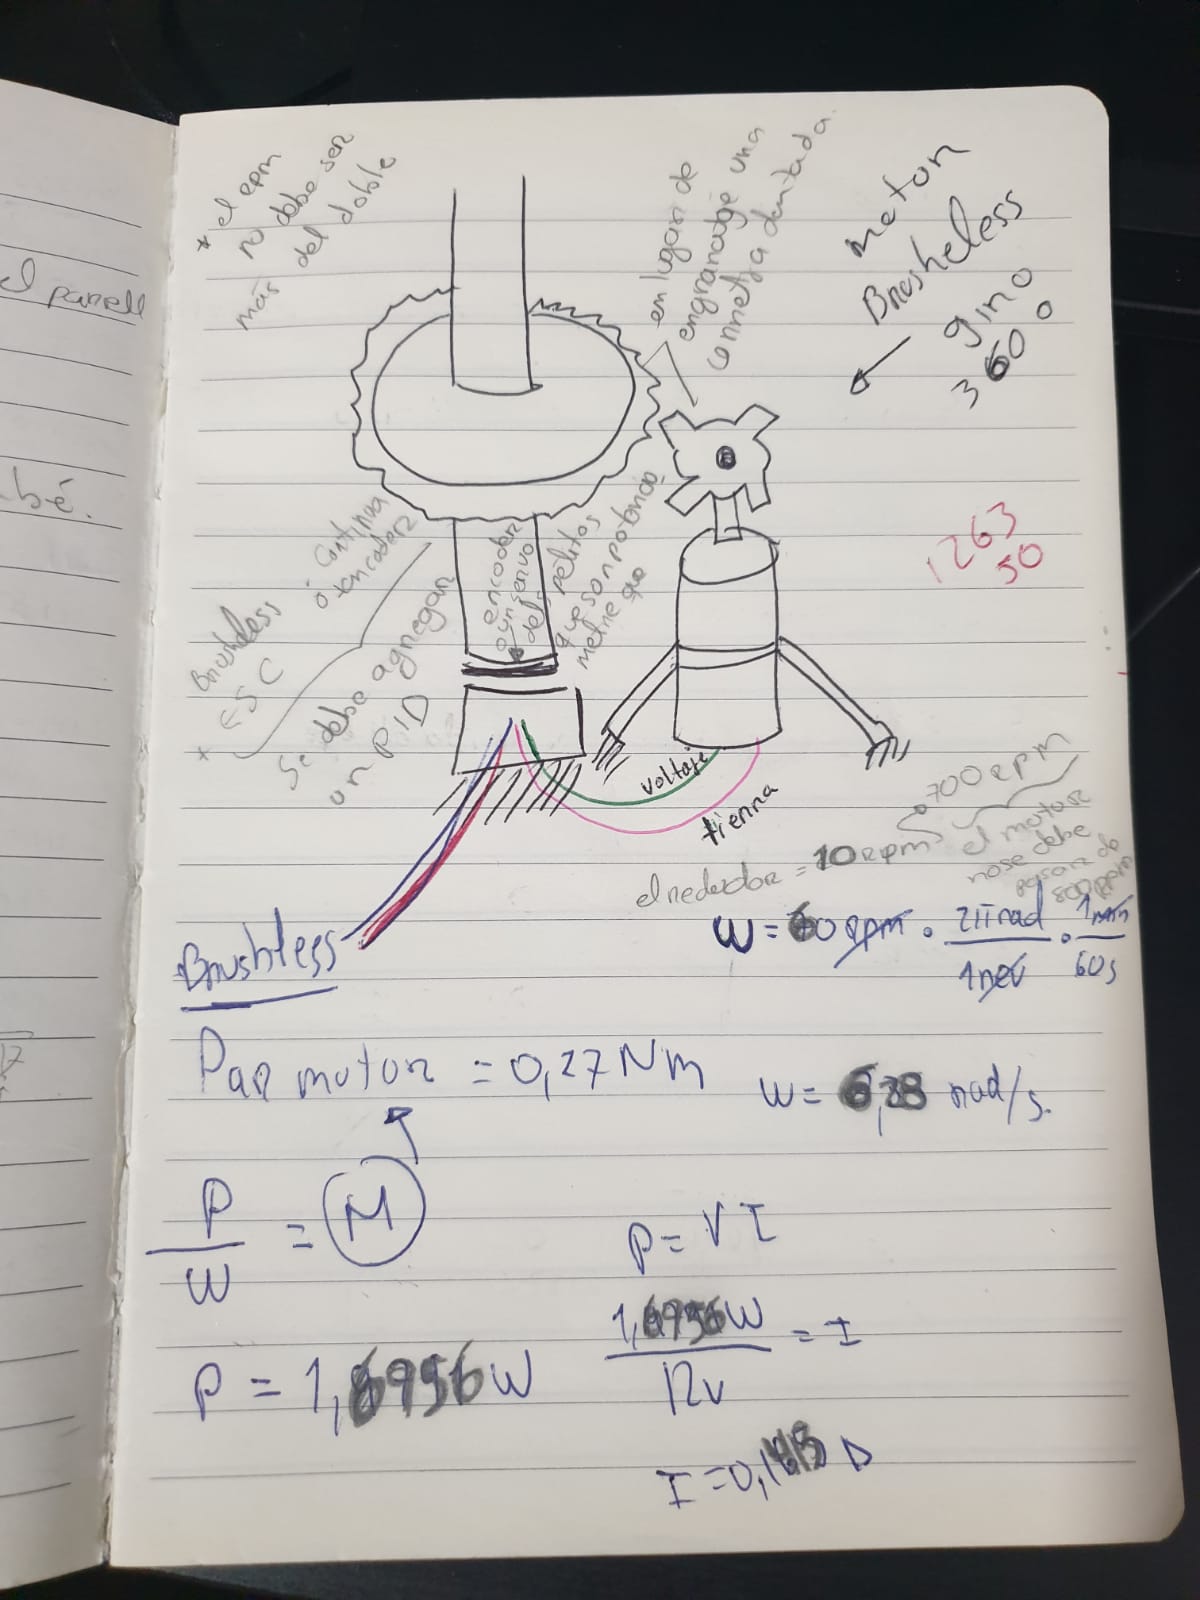 el panell
bé.
* el rpm
no debe ser
más del doble
en lugar de
engranatge una
corretja dentada.
motor
Brusheless
giro
360°
1263
50
* Brushless
ESC
ó Cantinua
encoder
Se debe agregar
un PID
encoder
o un servo
de
pelitos
que son potencio
metre que
voltaje
tierra
700rpm
el reductor = 10rpm
el motor
no se debe
pasar de
800rpm
W = 60 rpm · 2π rad / 1 rev · 1 min / 60s
Brushless
Par motor = 0,27Nm
W = 6,28 rad/s.
P / W = M
P = V I
P = 1,6956W
1,6956W / 12v = I
I = 0,1413 A